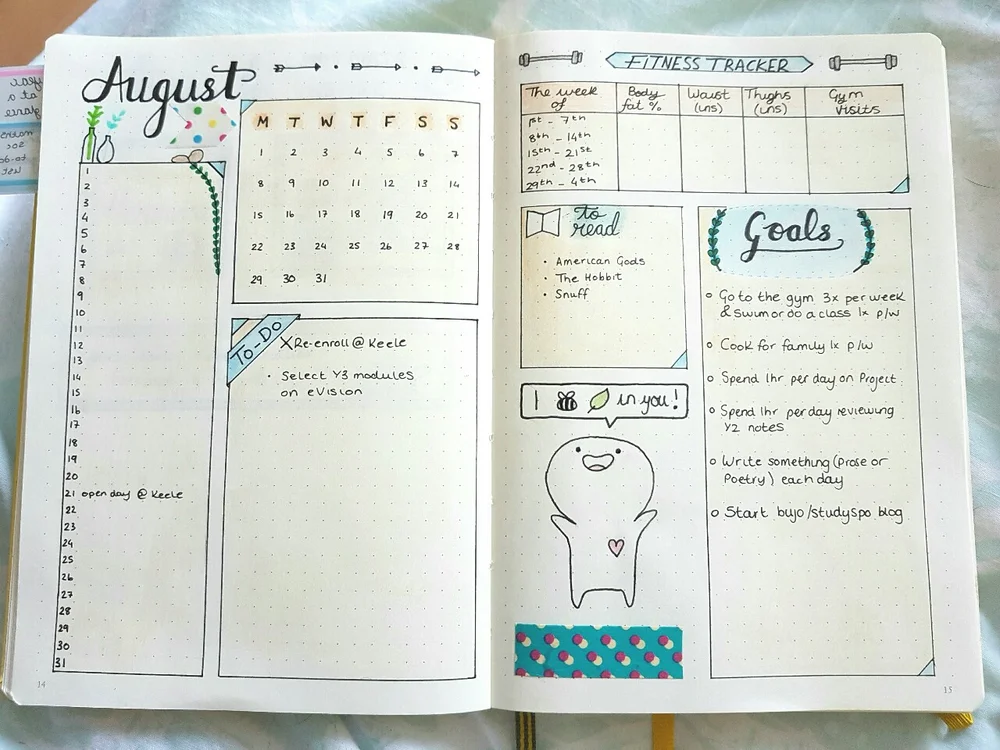 August
M T W T F S S
1 2 3 4 5 6 7
8 9 10 11 12 13 14
15 16 17 18 19 20 21
22 23 24 25 26 27 28
29 30 31
1
2
3
4
5
6
7
8
9
10
11
12
13
14
15
16
17
18
19
20
21 open day @ Keele
22
23
24
25
26
27
28
29
30
31
TO-DO
X Re-enroll @ Keele
• Select Y3 modules
on eVision
14
FITNESS TRACKER
The week of Body fat % Waist (ins) Thighs (ins) Gym Visits
1st - 7th
8th - 14th
15th - 21st
22nd - 28th
29th - 4th
to
read
• American Gods
• The Hobbit
• Snuff
I in you!
Goals
Go to the gym 3x per week
& swim or do a class 1x p/w
Cook for family 1x p/w
Spend 1hr per day on Project.
Spend 1hr per day reviewing
Y2 notes
Write something (Prose or
Poetry) each day
Start bujo/studyspo blog
15